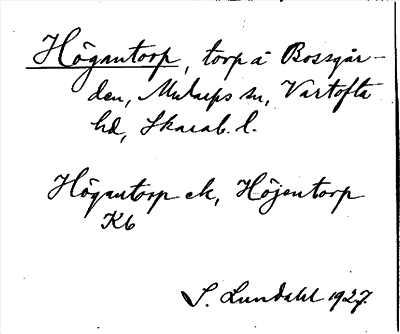 Högantorp, torp å Bossgår-
den, Mularps sn, Vartofta
hd, Skarab. l.
Högantorp ek, Höjentorp
Kb
S. Lundahl 1927.